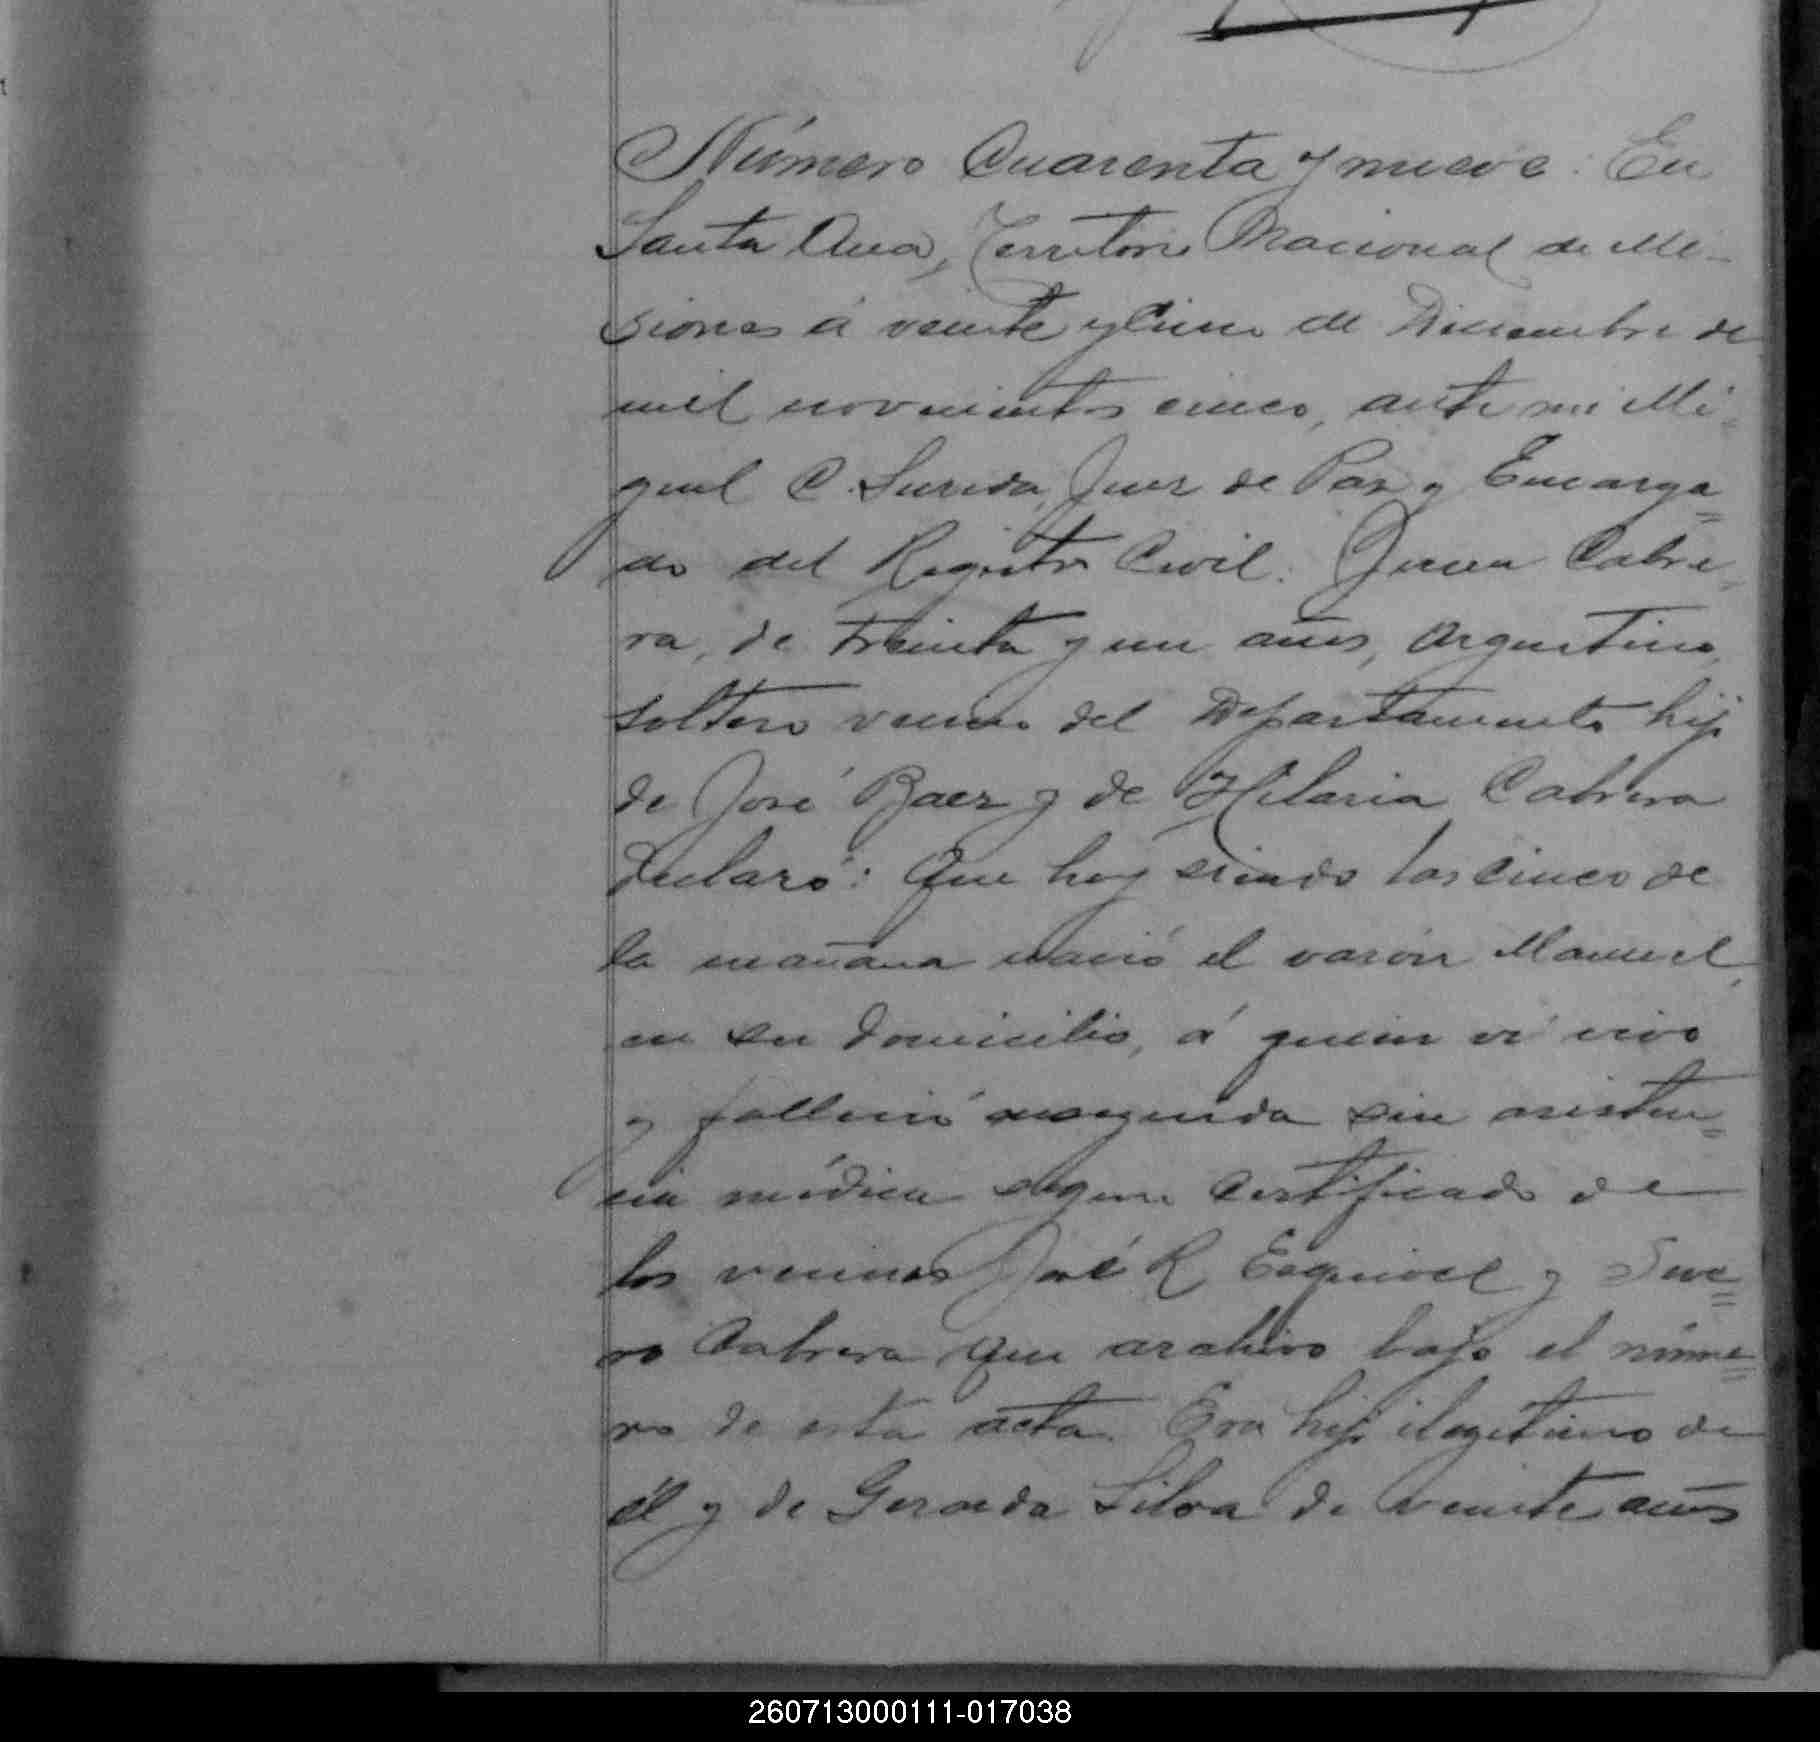 Número Cuarenta y nueve: En
Santa Ana, Territorio Nacional de Mi-
siones á veinte y cinco de Diciembre de
mil novecientos cinco, ante mi Mi=
guel C. Juez de Paz y Encarga=
do del Registro Civil: Juan Cabre=
ra, de treinta y un años, Argentino,
soltero vecino del Departamento hijo
de José Baez y de Hilaria Cabrera
declaró: Que hoy siendo las cinco de
la mañana nació el varón Manuel,
en su domicilio, á quien vi vivo
y falleció enseguida sin asisten=
cia médica segun certificado de
los vecinos José R Esquivel y Seve=
ro Cabrera que archivo bajo el núme=
ro de esta acta. Era hijo ilegitimo de
él y de Silva de veinte años
260713000111-017038